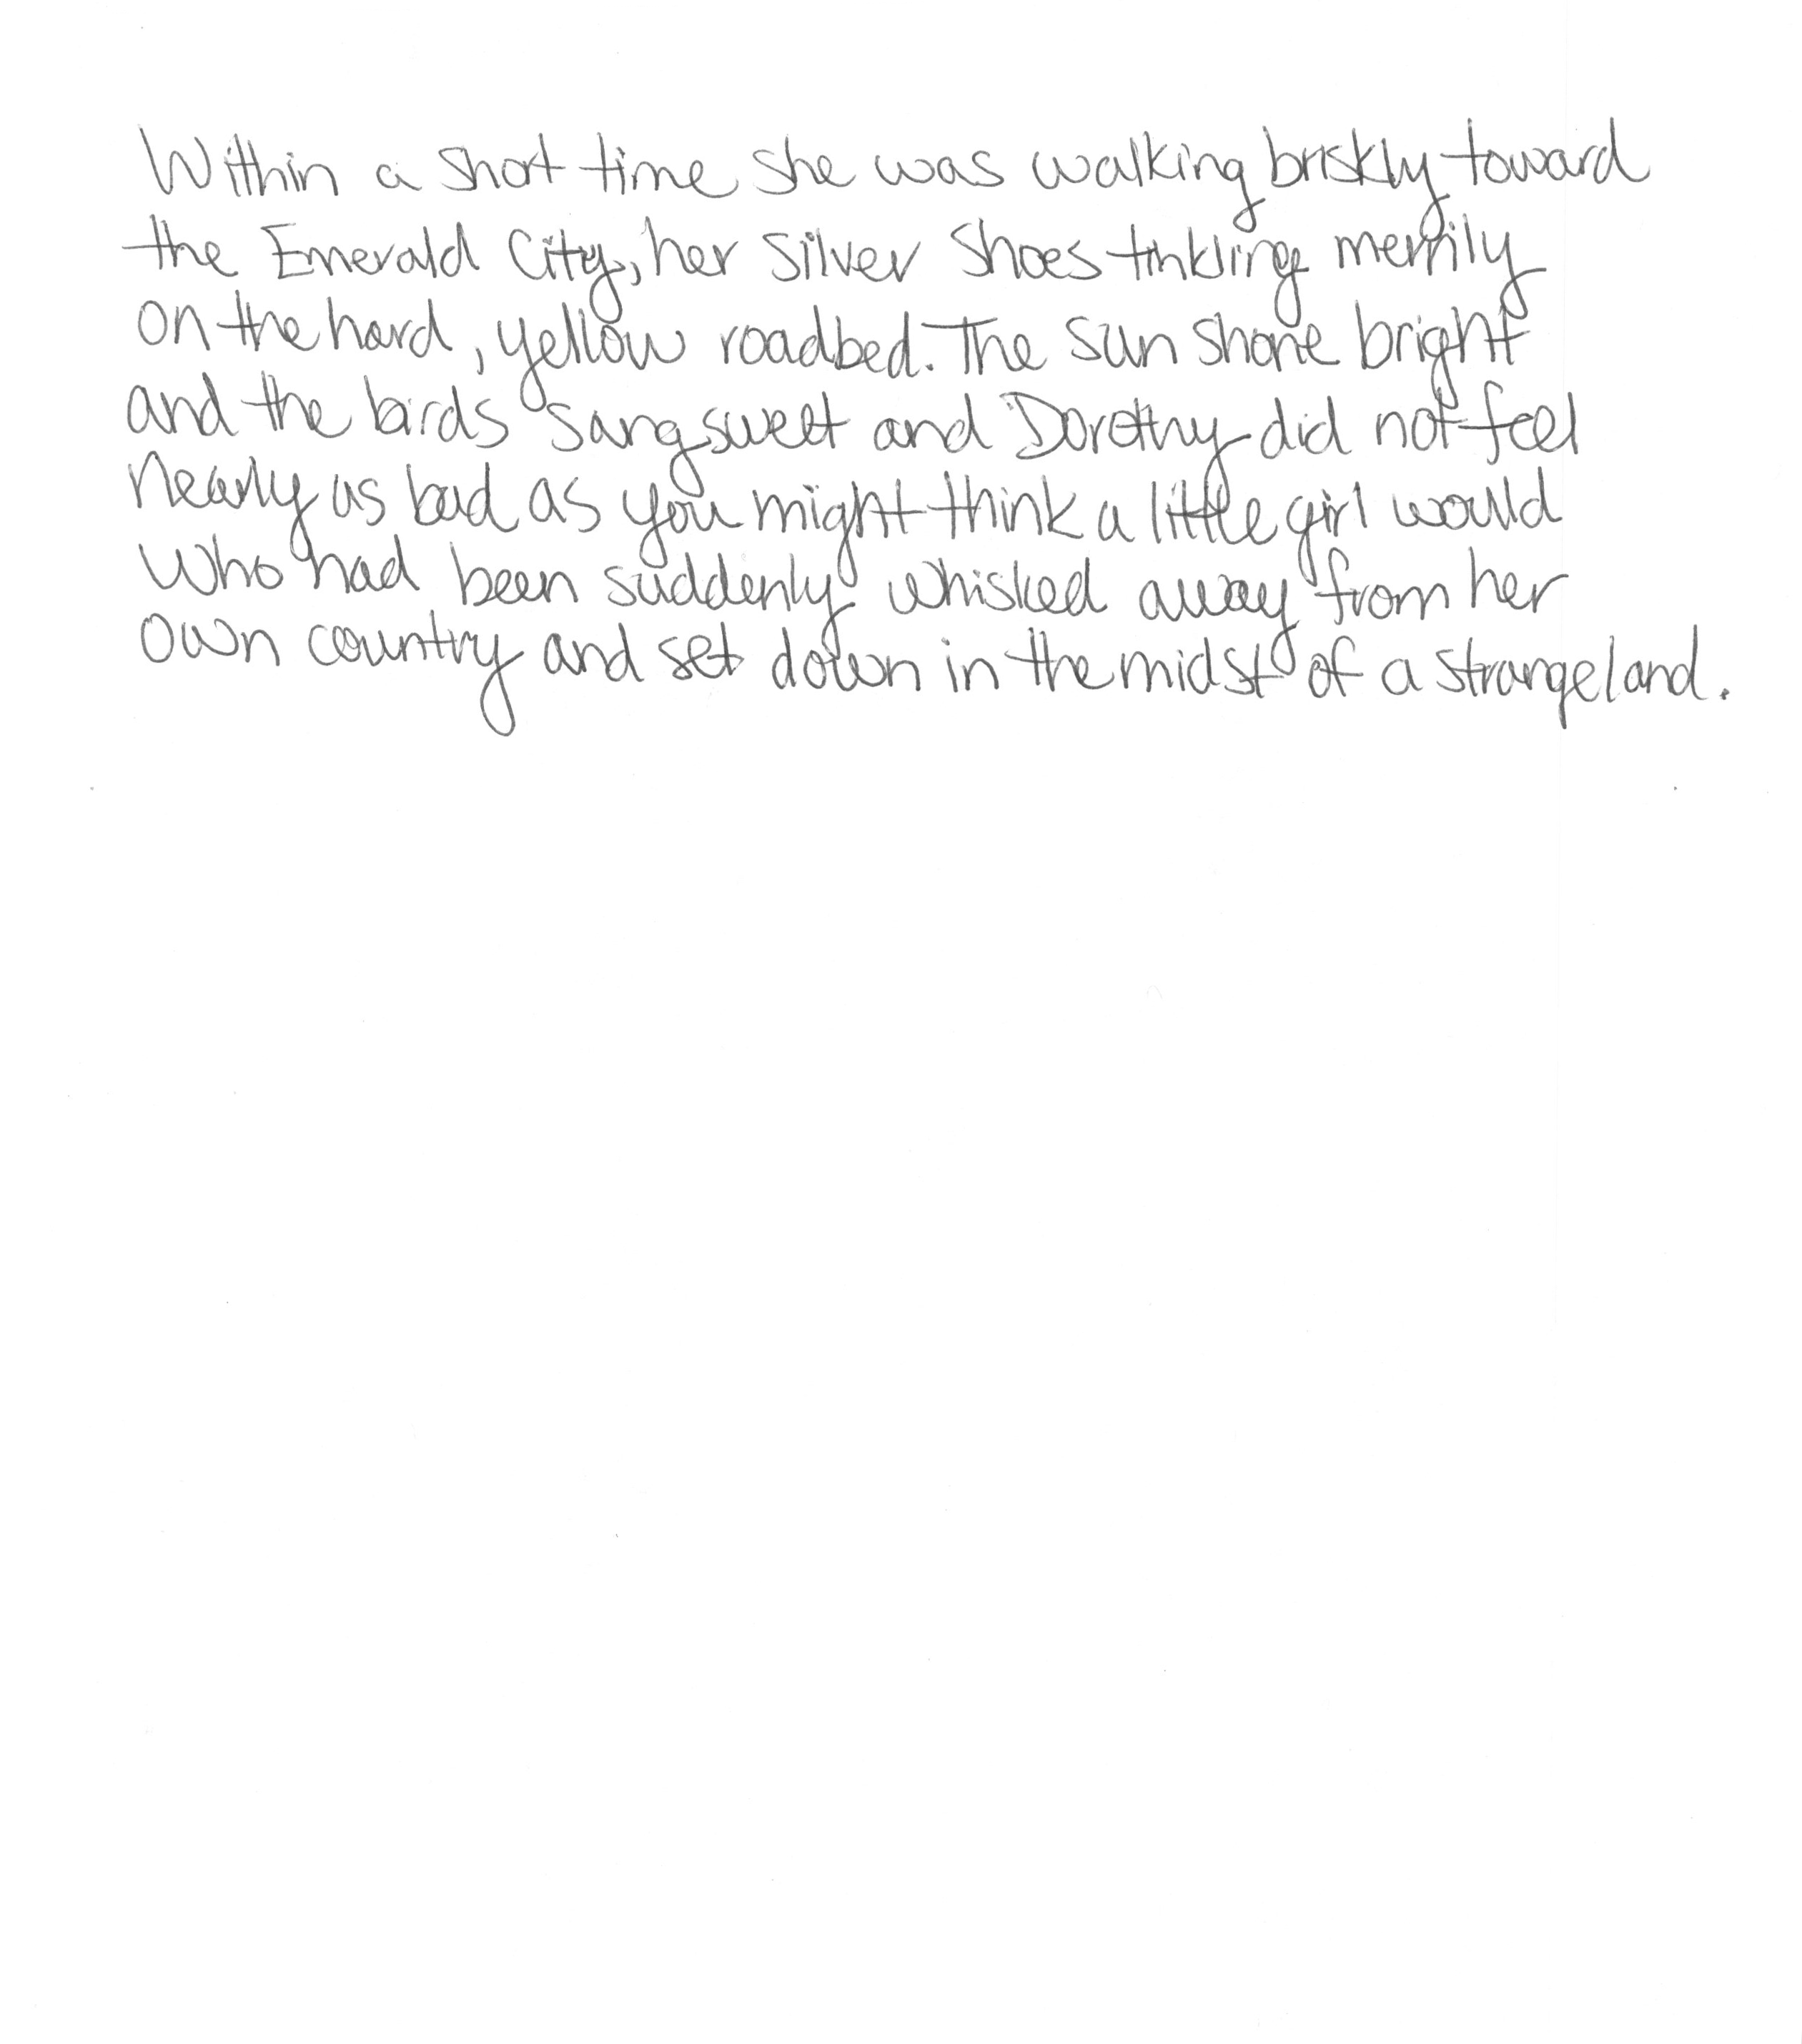 Within a short time she was walking briskly toward
the Emerald City, her Silver Shoes tinkling merrily
on the hard, yellow roadbed. The sun shone bright
and the birds sang sweet and Dorothy did not feel
nearly as bad as you might think a little girl would
who had been suddenly whisked away from her
own country and set down in the midst of a strange land.